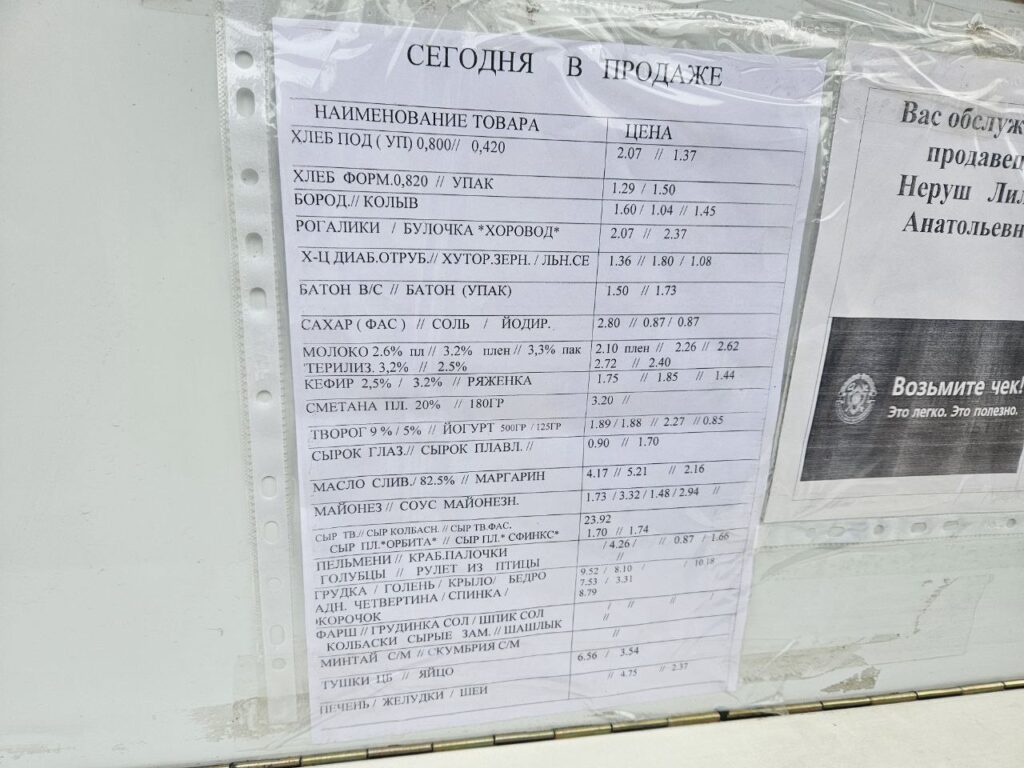 СЕГОДНЯ В ПРОДАЖЕ
НАИМЕНОВАНИЕ ТОВАРА ЦЕНА
ХЛЕБ ПОД ( УП) 0,800// 0,420 2.07 // 1.37
ХЛЕБ ФОРМ.0,820 // УПАК 1.29 / 1.50
БОРОД.// КОЛЫВ 1.60 / 1.04 // 1.45
РОГАЛИКИ / БУЛОЧКА *ХОРОВОД* 2.07 // 2.37
Х-Ц ДИАБ.ОТРУБ.// ХУТОР.ЗЕРН. / ЛЬН.СЕ 1.36 // 1.80 / 1.08
БАТОН В/С // БАТОН (УПАК) 1.50 // 1.73
САХАР ( ФАС ) // СОЛЬ / ЙОДИР. 2.80 // 0.87 / 0.87
МОЛОКО 2.6% пл // 3.2% плен // 3,3% пак 2.10 плен // 2.26 // 2.62
ТЕРИЛИЗ. 3,2% // 2.5% 2.72 // 2.40
КЕФИР 2,5% / 3.2% // РЯЖЕНКА 1.75 // 1.85 // 1.44
СМЕТАНА ПЛ. 20% // 180ГР 3.20 //
ТВОРОГ 9 % / 5% // ЙОГУРТ 500ГР / 125ГР 1.89 / 1.88 // 2.27 // 0.85
СЫРОК ГЛАЗ.// СЫРОК ПЛАВЛ. // 0.90 // 1.70
МАСЛО СЛИВ./ 82.5% // МАРГАРИН 4.17 // 5.21 // 2.16
МАЙОНЕЗ // СОУС МАЙОНЕЗН. 1.73 / 3.32 / 1.48 / 2.94 //
СЫР ТВ.// СЫР КОЛБАСН. // СЫР ТВ.ФАС. 23.92
СЫР ПЛ.*ОРБИТА* // СЫР ПЛ.* СФИНКС* 1.70 // 1.74
ПЕЛЬМЕНИ // КРАБ.ПАЛОЧКИ / 4.26 / // 0.87 / 1.66
ГОЛУБЦЫ // РУЛЕТ ИЗ ПТИЦЫ //
ГРУДКА / ГОЛЕНЬ / КРЫЛО/ БЕДРО 9.52 / 8.10 / / 10.18
АДН. ЧЕТВЕРТИНА / СПИНКА / 7.53 / 3.31
ОКОРОЧОК 8.79
ФАРШ // ГРУДИНКА СОЛ / ШПИК СОЛ / // //
КОЛБАСКИ СЫРЫЕ ЗАМ. // ШАШЛЫК //
МИНТАЙ С/М // СКУМБРИЯ С/М //
ТУШКИ ЦБ // ЯЙЦО 6.56 / 3.54
ПЕЧЕНЬ / ЖЕЛУДКИ / ШЕИ // 4.75 // 2.37
Вас обслуж
продавец
Неруш Лил
Анатольевн
Возьмите чек!
Это легко. Это полезно.